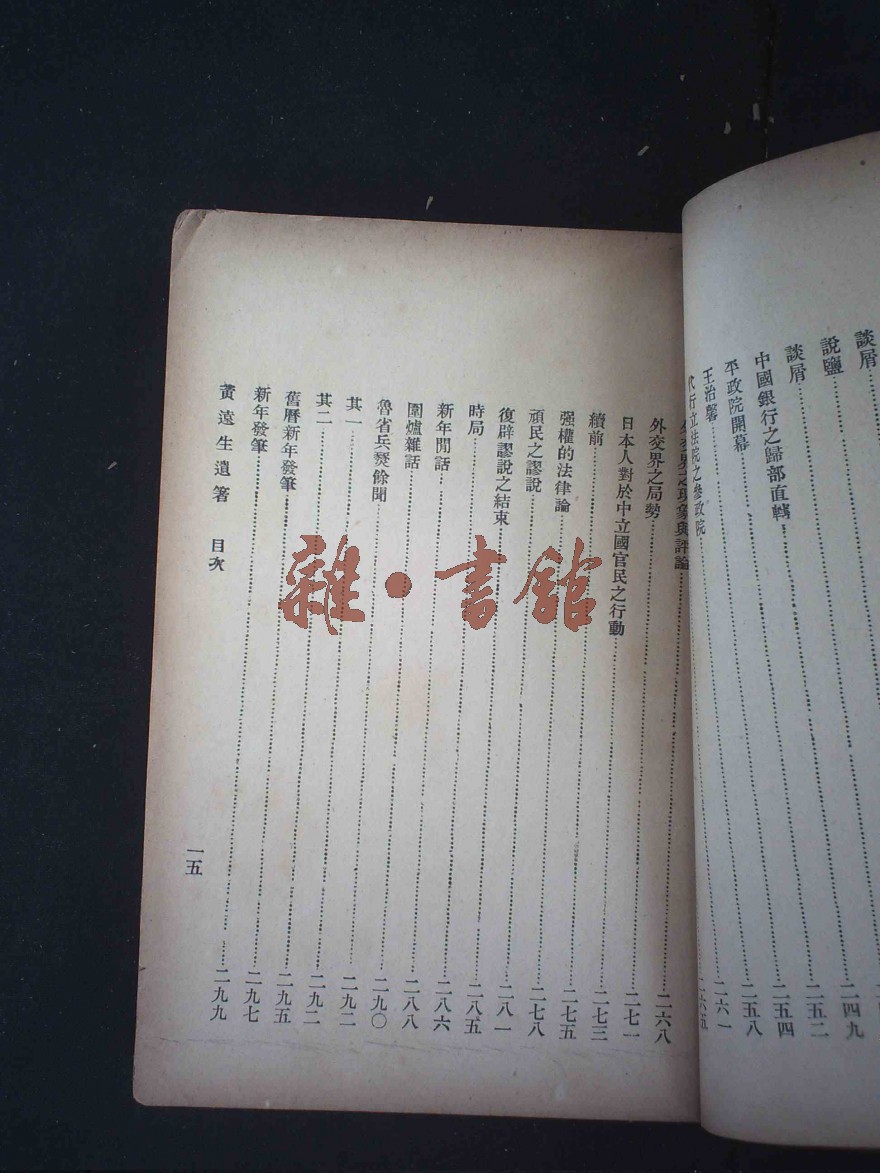 談屑
說鹽 二四九
談屑 二五二
中國銀行之歸部直轄 二五四
平政院開幕 二五八
王治馨 二六一
代行立法院之參政院 二六五
外交界之現象與評論 二六八
外交界之局勢 二七一
日本人對於中立國官民之行動 二七三
續前 二七五
强權的法律論 二七八
頑民之謬說 二八一
復辟謬說之結束 二八五
時局 二八六
新年閒話 二八八
圍爐雜話 二九〇
魯省兵燹餘聞 二九二
其一 二九二
其二 二九五
舊曆新年發筆 二九七
新年發筆 二九九
黃遠生遺箸 目次 一五
雜·書館